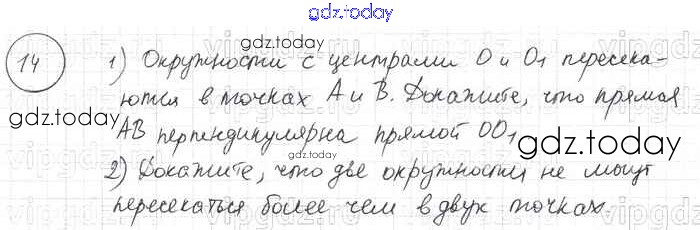 gdz.today
14
gdz.today
1) Окружности с центрами O и O₁ пересека-
ются в точках A и B. Докажите, что прямая
gdz.today
AB перпендикулярна прямой OO₁
gdz.today
gdz.today
2) Докажите, что две окружности не могут
пересекаться более чем в двух точках.